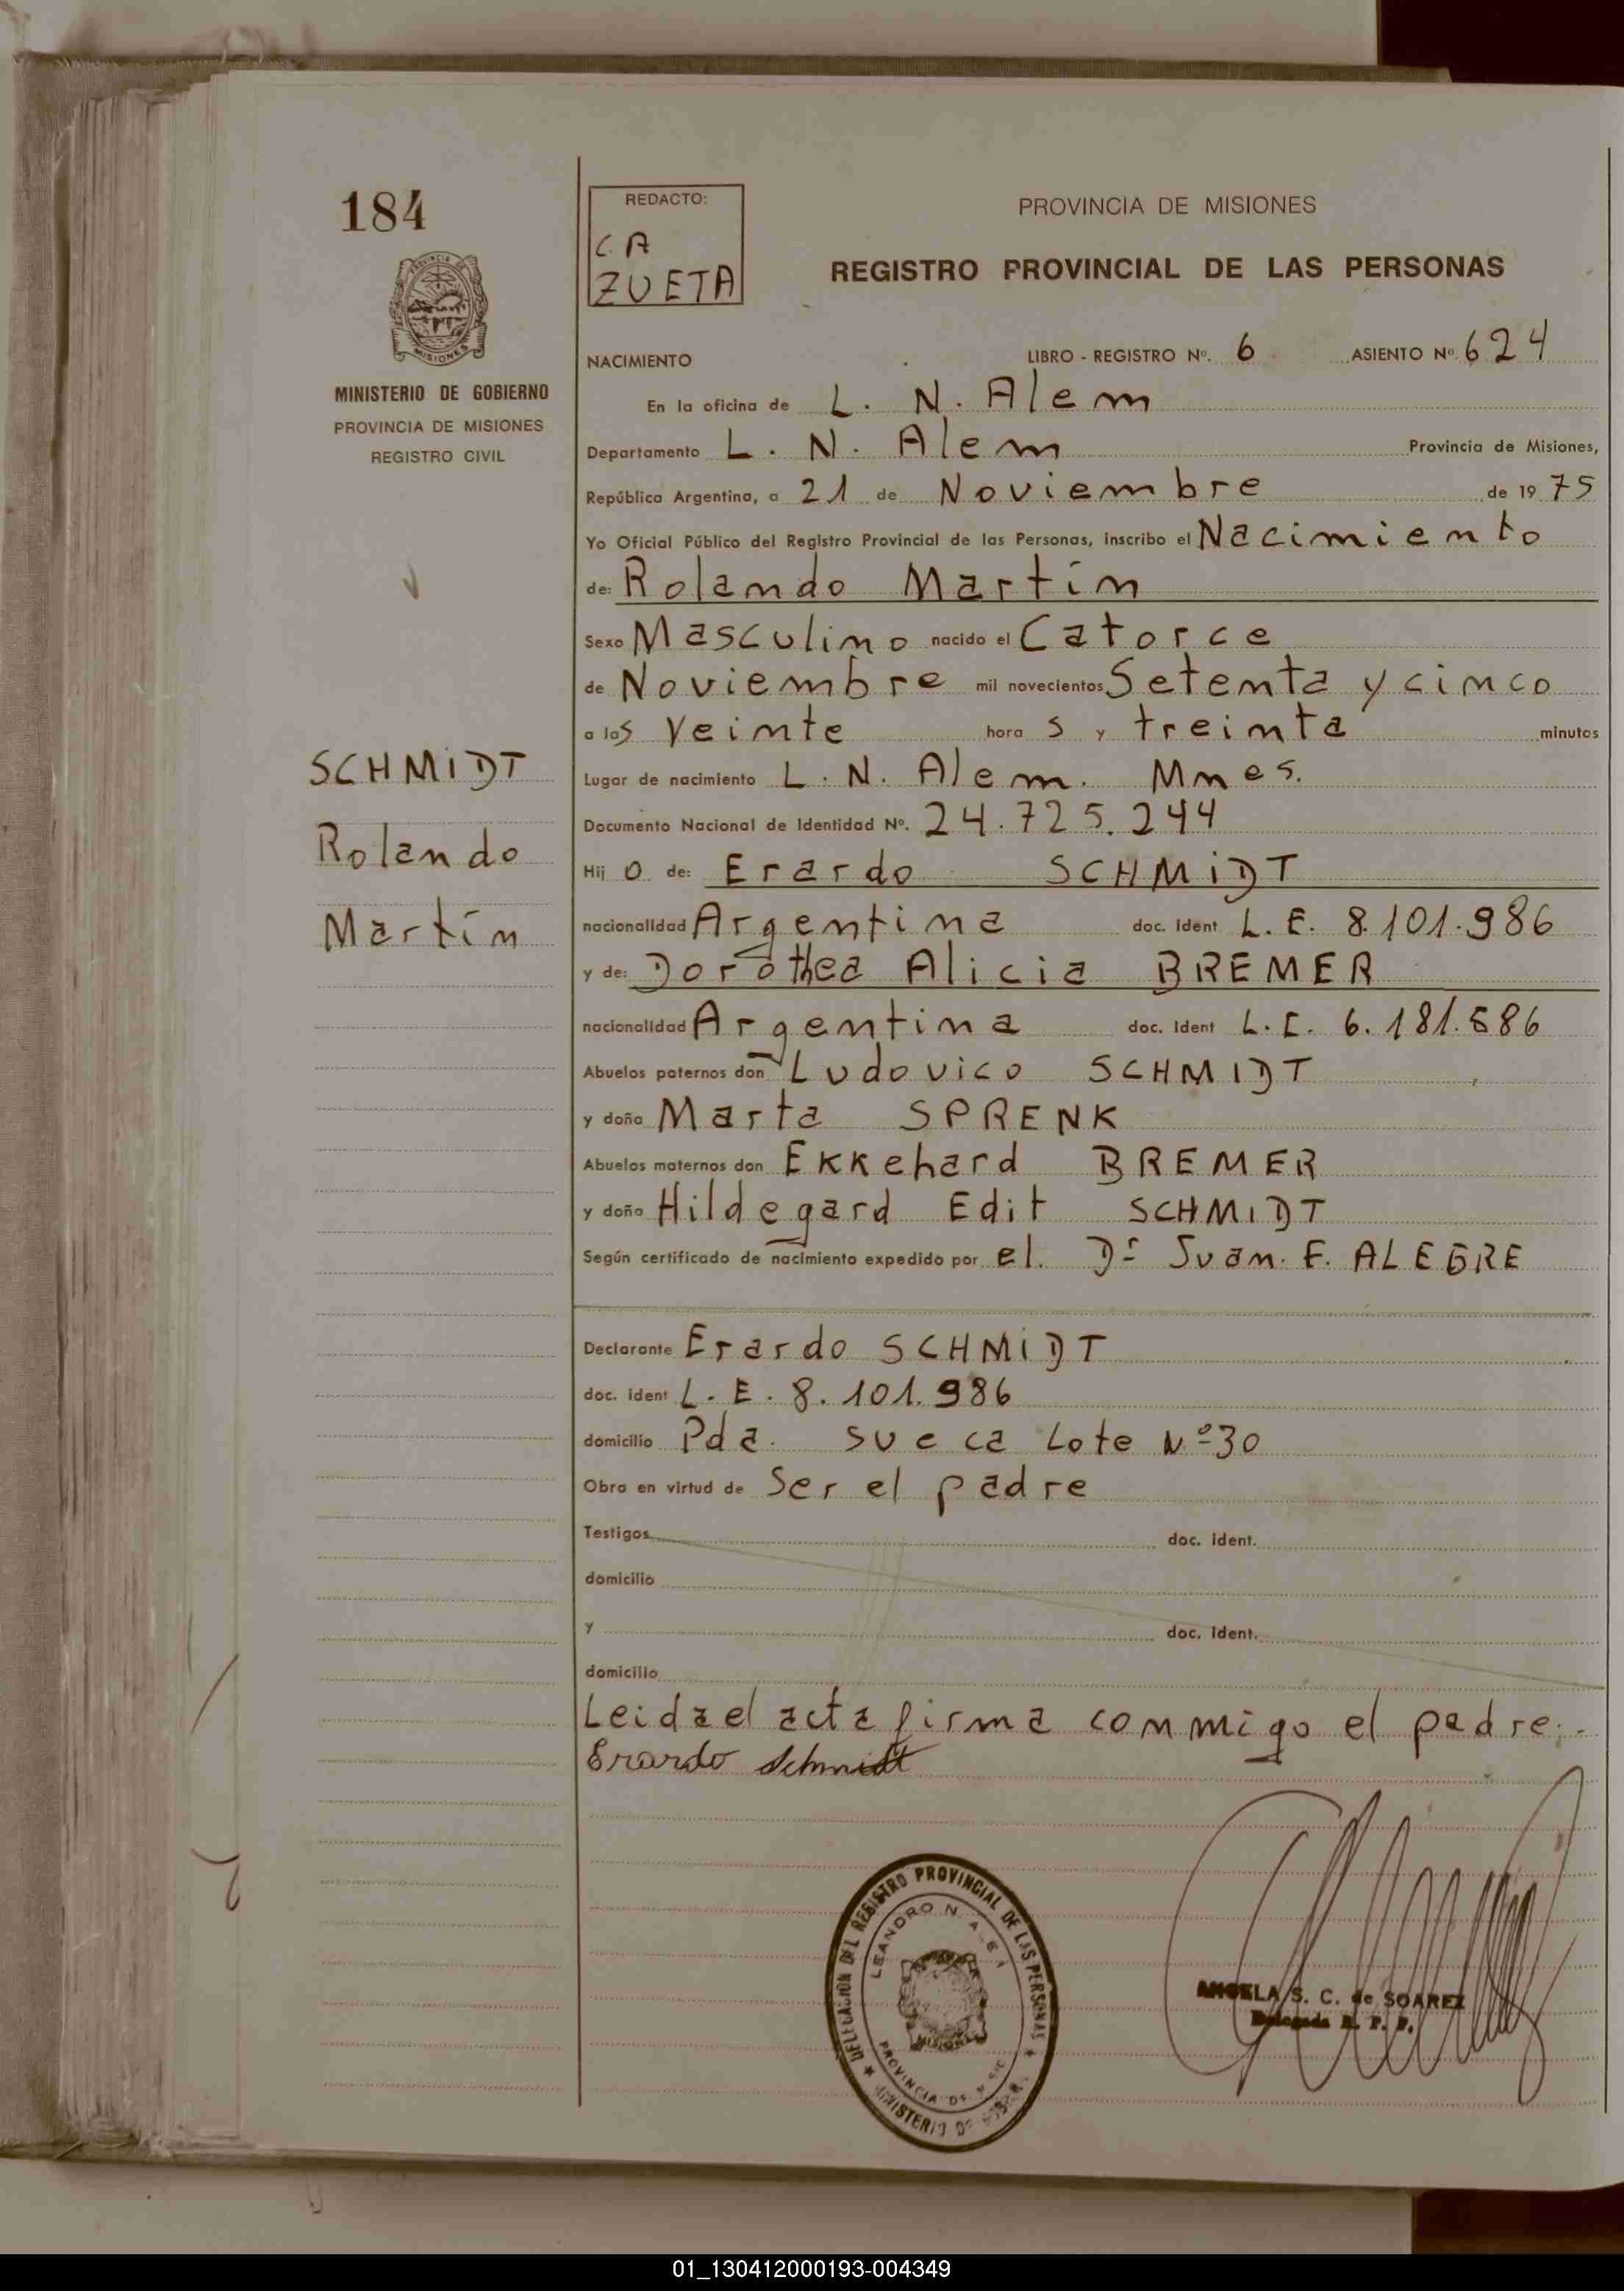 184
MISIONES
MINISTERIO DE GOBIERNO
PROVINCIA DE MISIONES
REGISTRO CIVIL
SCHMIDT
Rolando
Martín
REDACTO:
C. A
ZUETA
PROVINCIA DE MISIONES
REGISTRO PROVINCIAL DE LAS PERSONAS
NACIMIENTO LIBRO - REGISTRO Nº. 6 ASIENTO Nº. 624
En la oficina de L. N. Alem
Departamento L. N. Alem Provincia de Misiones,
República Argentina, a 21 de Noviembre de 19 75
Yo Oficial Público del Registro Provincial de las Personas, inscribo el Nacimiento
de: Rolando Martín
Sexo Masculino nacido el Catorce
de Noviembre mil novecientos Setenta y cinco
a las Veinte hora s y treinta minutos
Lugar de nacimiento L. N. Alem. Mnes.
Documento Nacional de Identidad Nº. 24.725.244
Hij o de: Erardo SCHMIDT
nacionalidad Argentina doc. Ident L. E. 8.101.986
y de: Dorothea Alicia BREMER
nacionalidad Argentina doc. Ident L. C. 6.181.
Abuelos paternos don Ludovico SCHMIDT
y doña Marta SPRENK
Abuelos maternos don Ekkehard BREMER
y doña Hildegard Edit SCHMIDT
Según certificado de nacimiento expedido por el. Dr Juan. F. ALEGRE
Declarante Erardo SCHMIDT
doc. ident L. E. 8.101.986
domicilio Pda. sueca Lote Nº 30
Obra en virtud de Ser el padre
Testigos doc. ident.
domicilio
y doc. ident.
domicilio
Leida el acta firma conmigo el padre.-
Erardo Schmidt
DELEGACION DEL REGISTRO PROVINCIAL DE LAS PERSONAS
LEANDRO N. ALEM
MISIONES
PROVINCIA DE
MINISTERIO DE
ANGELA S. C. de SOAREZ
Delegada R. P. P.
01_130412000193-004349